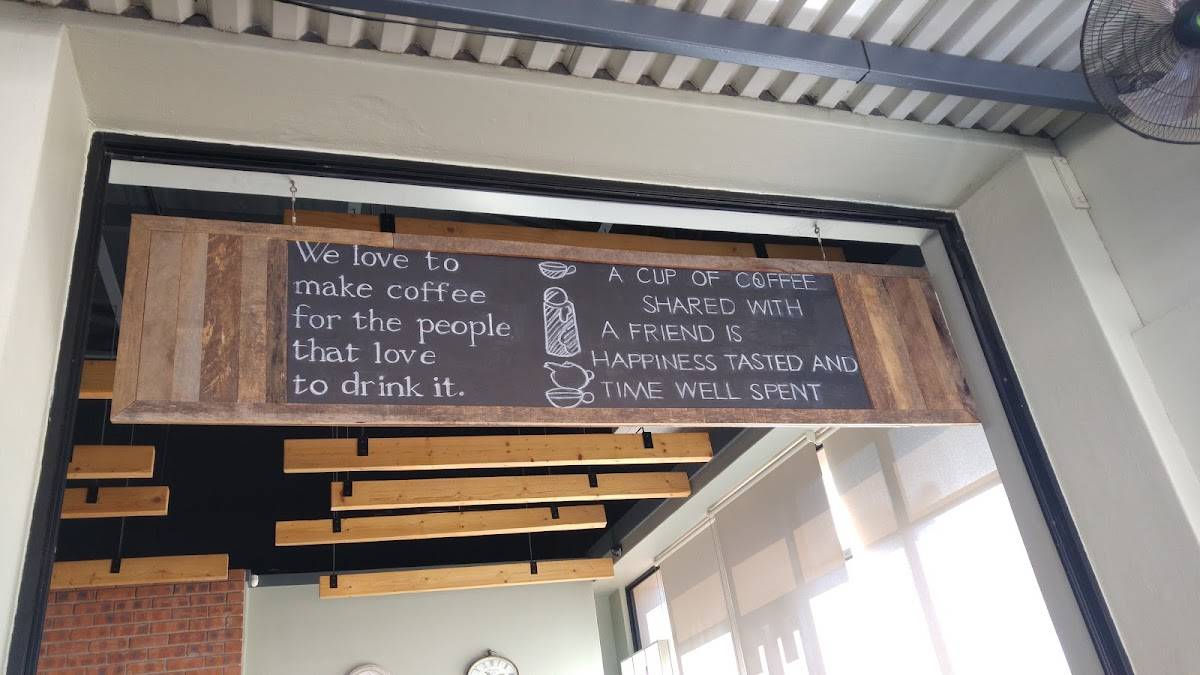 We love to
make coffee
for the people
that love
to drink it.
A CUP OF COFFEE
SHARED WITH
A FRIEND IS
HAPPINESS TASTED AND
TIME WELL SPENT